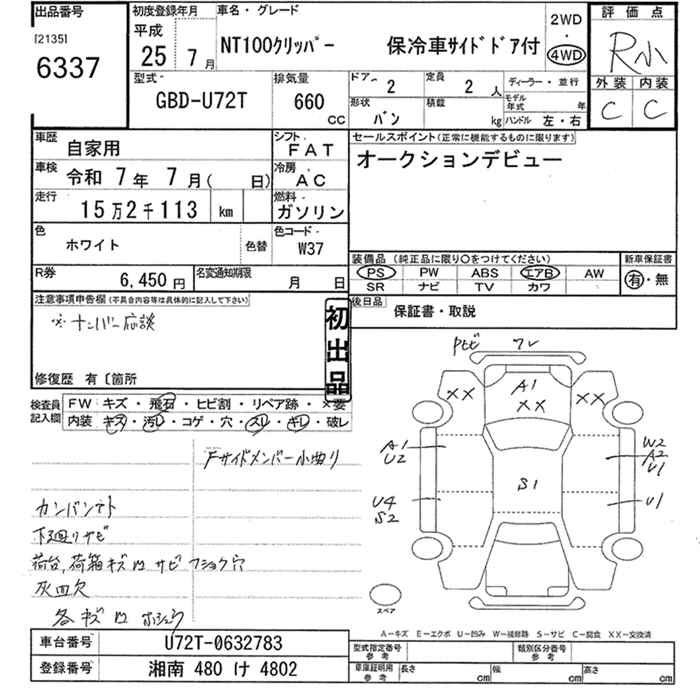 出品番号
[2135]
6337
初度登録年月
平成
25 年 7 月
車名・グレード
NT100クリッパー 保冷車サイドドア付
2WD
・
4WD
評価点
R小
外装 内装
C C
型式
GBD-U72T
排気量
660
CC
ドア 2
定員 2 人
形状 バン
積載 kg
ディーラー・並行
モデル年式 年
ハンドル 左・右
車歴 自家用
シフト FAT
車検 令和 7 年 7 月( 日)
冷房 AC
走行 15万2千113 km
燃料 ガソリン
色 ホワイト 色替
色コード W37
R券 6,450 円
名変通知期限 月 日
セールスポイント(正常に機能するものに限ります)
オークションデビュー
装備品 (純正品に限り○をつけてください)
PS PW ABS エアB AW
SR ナビ TV カワ
新車保証書
有・無
後日品
保証書・取説
注意事項申告欄(不具合内容等は具体的に記入して下さい)
※ナンバー応談
初出品
修復歴 有〔箇所
検査員記入欄
FW キズ・飛石・ヒビ割・リペア跡・×要
内装 キズ・汚レ・コゲ・穴・スレ・キレ・破レ
Fサイドメンバー小曲り
カンバンアト
下廻りサビ
荷台、荷箱キズ凹サビフショク穴
灰皿欠
各キズ凹ホシュウ
Pセビ ワレ
XX A1 XX
XX
A1
U2
W2
A2
U1
S1
U4
S2
U1
スペア
A-キズ E-エクボ U-凹み W-補修跡 S-サビ C-腐食 XX-交換済
車台番号 U72T-0632783
登録番号 湘南 480 け 4802
型式指定番号 参考
類別区分番号 参考
車庫証明用 参考
長さ cm 幅 cm 高さ cm